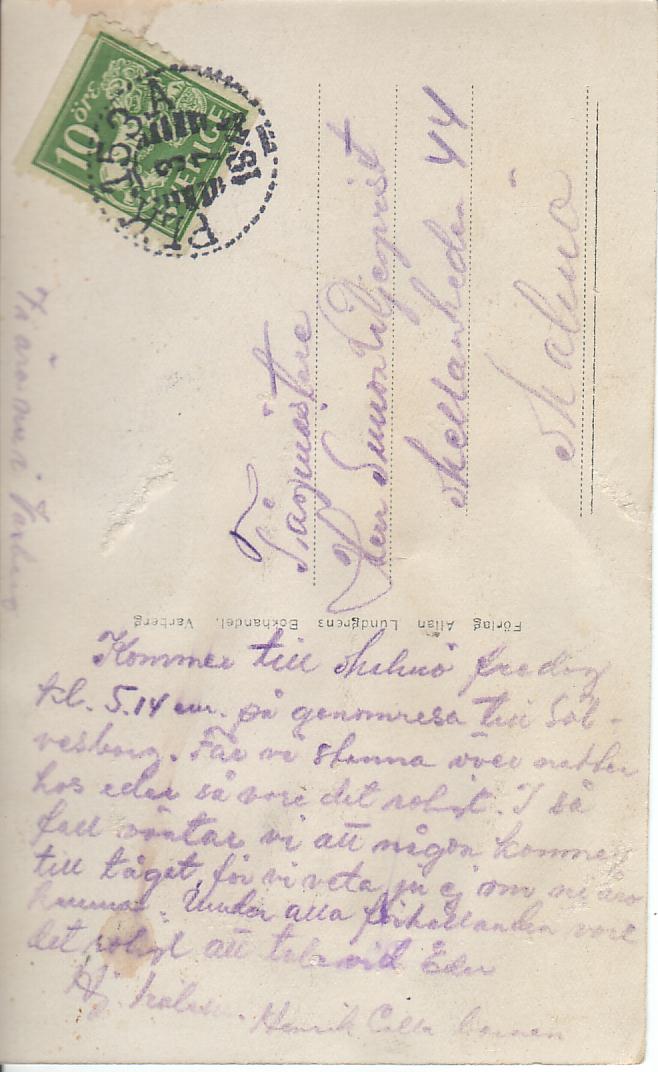 10 öre
SVERIGE
PKXP 153 A
Herr Simon
Mellanheden 44
Malmö
Förlag Allan Lundgrens Bokhandel, Varberg
Vi äro nu i Varberg
Kommer till Malmö fredag
kl. 5.14 em. på genomresa till Söl-
vesborg. Får vi stanna över natten
hos eder så vore det roligt. I så
fall väntar vi att någon kommer
till tåget, för vi veta ju ej om ni äro
hemma. Under alla förhållanden vore
det roligt att tala vid Eder
Hj. hälsn. Henrik Calla